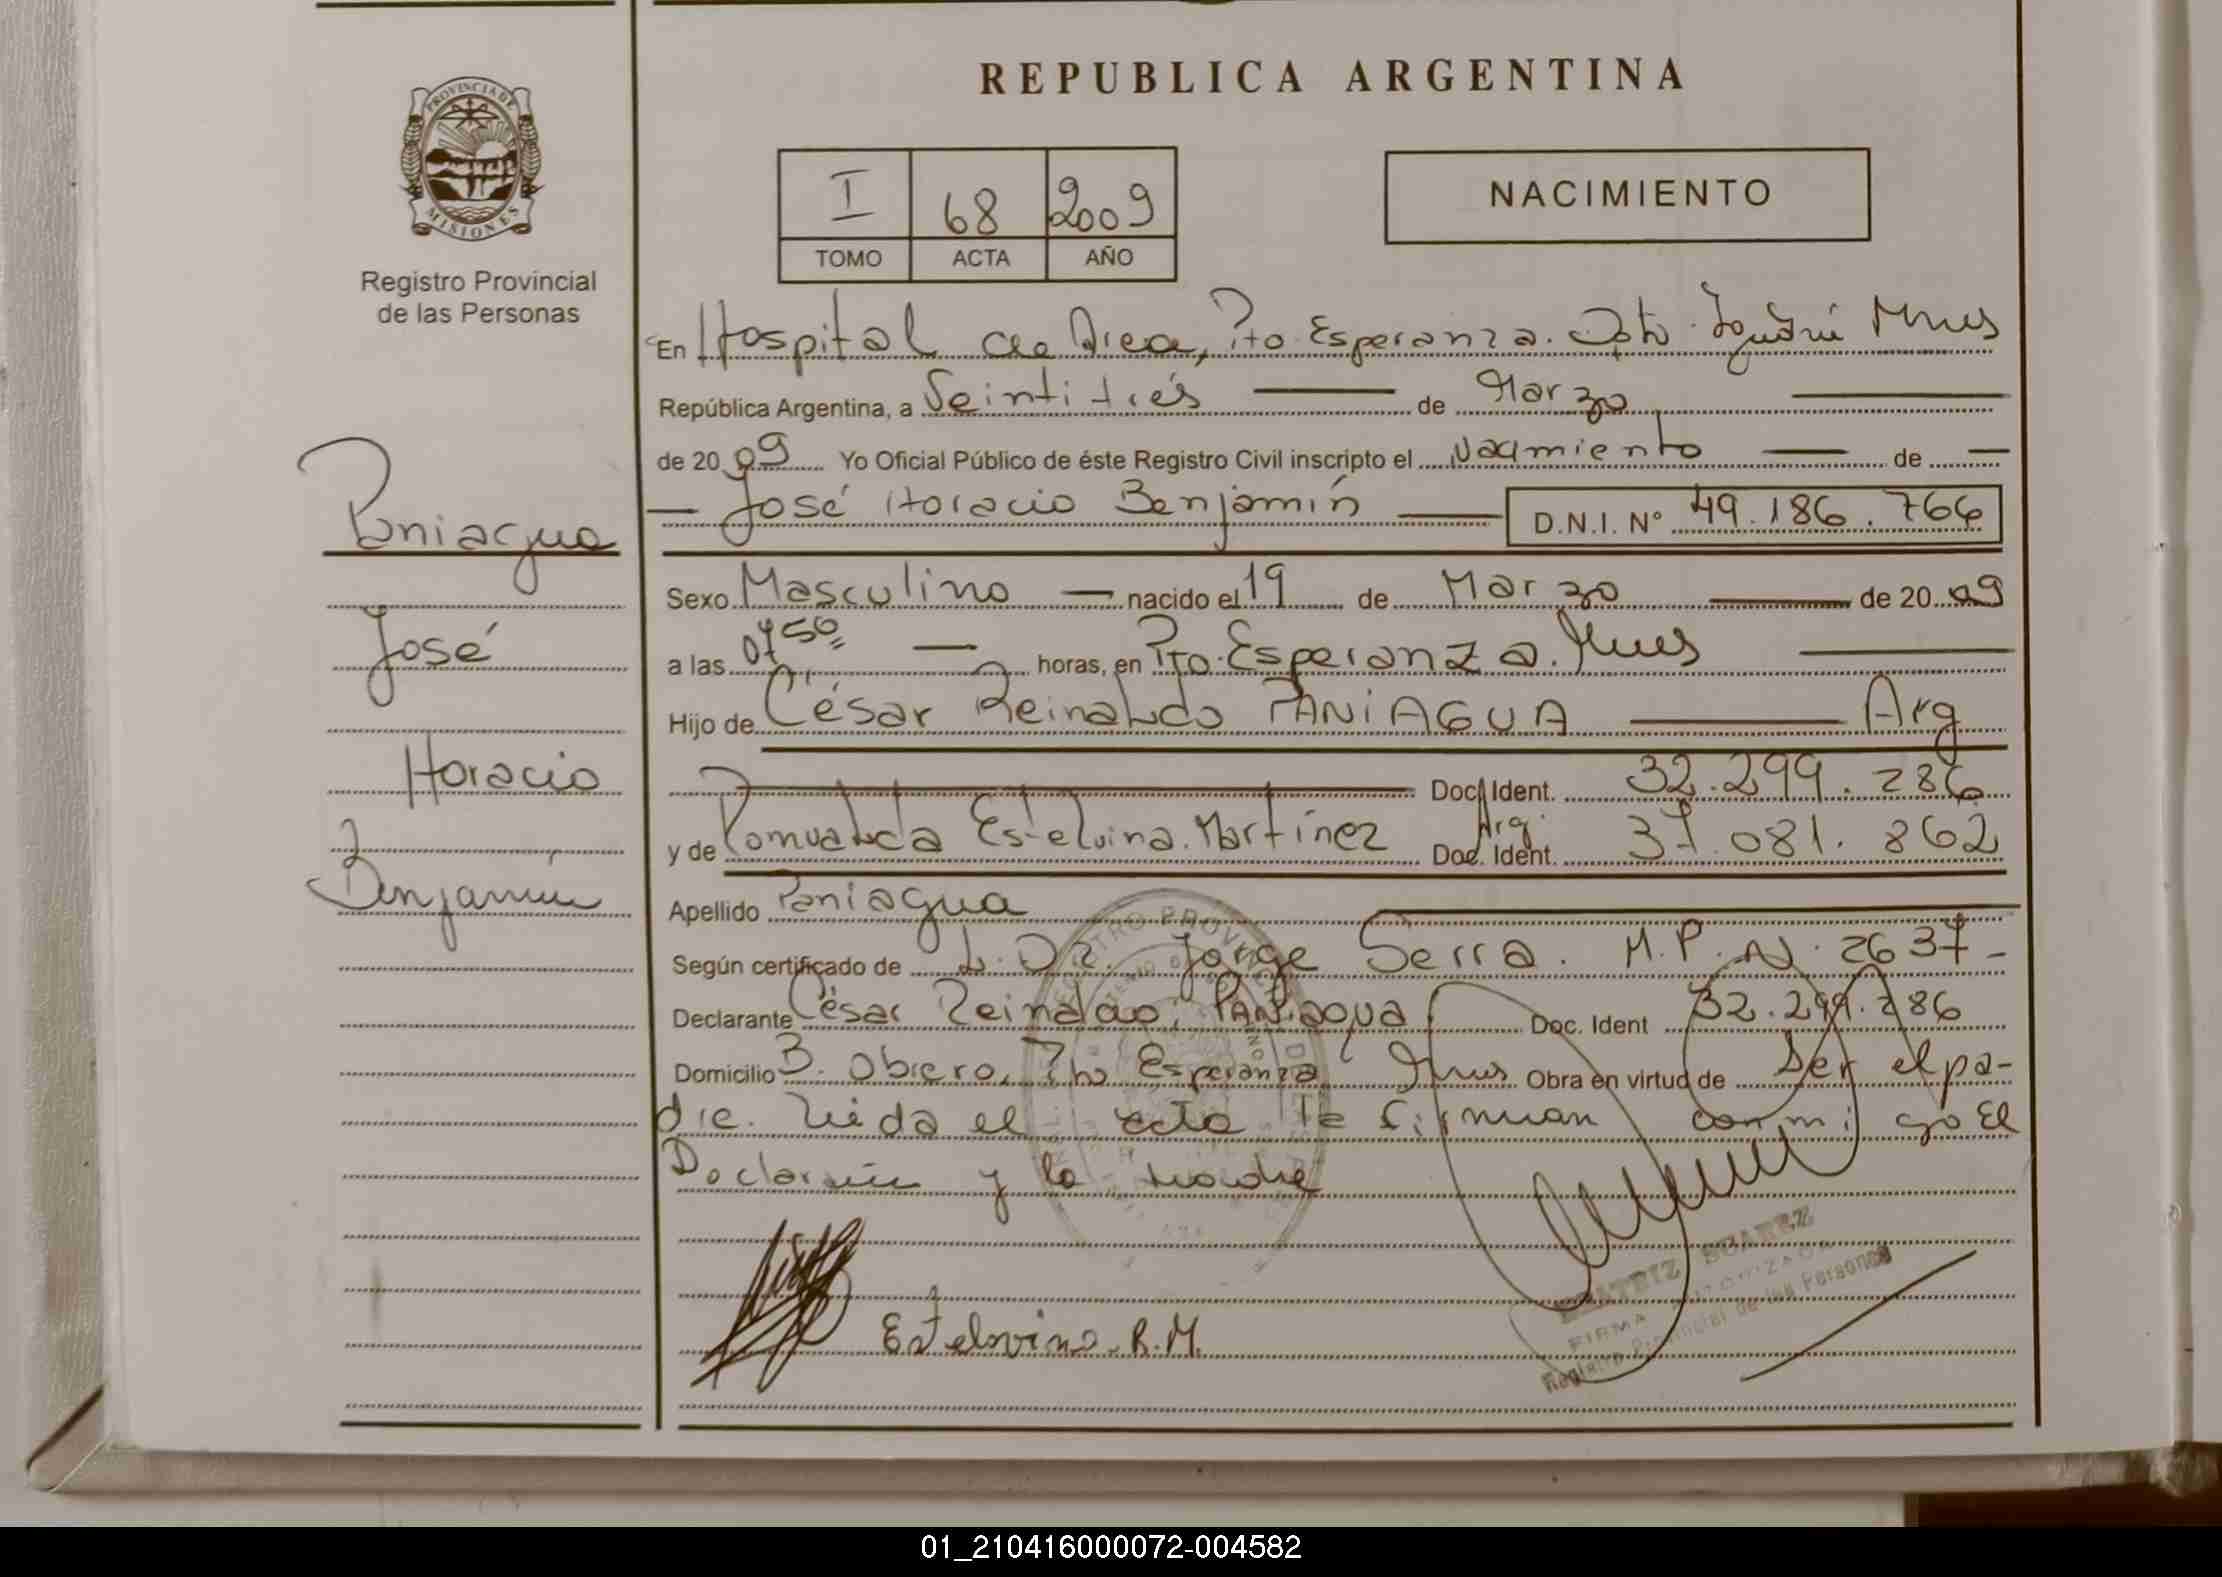 REPUBLICA ARGENTINA
PROVINCIA DE
MISIONES
Registro Provincial
de las Personas
I 68 2009
TOMO ACTA AÑO
NACIMIENTO
En Hospital de Area, Pto Esperanza. Dpto. Iguazú Mnes
República Argentina, a Veintitrés de Marzo
de 2009 Yo Oficial Público de éste Registro Civil inscripto el Nacimiento de
José Horacio Benjamín D.N.I. N° 49.186.766
Paniagua
José
Horacio
Benjamín
Sexo Masculino nacido el 19 de Marzo de 2009
a las 07 50 horas, en Pto. Esperanza. Mnes
Hijo de César Reinaldo PANIAGUA Arg
Doc. Ident. 32.299.286
y de Romualda Estelvina Martínez Arg. Doc. Ident. 37.081.862
Apellido Paniagua
Según certificado de L. Dr. Jorge Serra. M.P.N. 2637-
Declarante César Reinaldo PANIAGUA Doc. Ident 32.299.286
Domicilio B. Obrero, Pto Esperanza Mnes Obra en virtud de Ser el pa-
dre. Leida el acta la firman conmigo El
Declarante y la madre
Estelvina. R.M.
BEATRIZ SUAREZ
FIRMA AUTORIZADA
Registro Provincial de las Personas
01_210416000072-004582